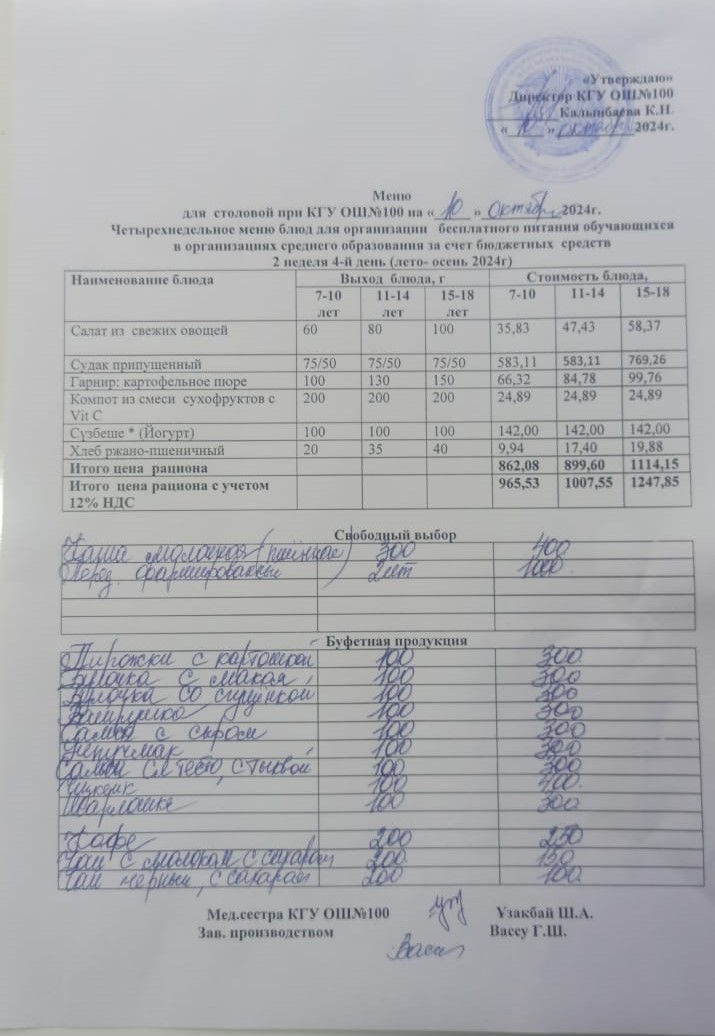 «Утверждаю»
Директор КГУ ОШ№100
Калынбаева К.Н.
« 10 » октября 2024г.
Меню
для столовой при КГУ ОШ№100 на « 10 » октября 2024г.
Четырехнедельное меню блюд для организации бесплатного питания обучающихся
в организациях среднего образования за счет бюджетных средств
2 неделя 4-й день (лето- осень 2024г)
Наименование блюда Выход блюда, г Стоимость блюда,
7-10 лет 11-14 лет 15-18 лет 7-10 11-14 15-18
Салат из свежих овощей 60 80 100 35,83 47,43 58,37
Судак припущенный 75/50 75/50 75/50 583,11 583,11 769,26
Гарнир: картофельное пюре 100 130 150 66,32 84,78 99,76
Компот из смеси сухофруктов с 200 200 200 24,89 24,89 24,89
Vit C
Сүзбеше * (Йогурт) 100 100 100 142,00 142,00 142,00
Хлеб ржано-пшеничный 20 35 40 9,94 17,40 19,88
Итого цена рациона 862,08 899,60 1114,15
Итого цена рациона с учетом 965,53 1007,55 1247,85
12% НДС
Свободный выбор
Каша молочная (пшённая) 300 400
Перец фаршированный 2шт 1000
Буфетная продукция
Пирожки с картошкой 100 300
Булочка с маком 100 300
Булочка со сгущенкой 100 300
100 300
Самса с сыром 100 300
100 300
Самса сл тесто, с тыквой 100 300
Чизкейк 100 400
Шарлотка 100 300
Кофе 200 250
Чай с молоком с сахаром 200 150
Чай черный, с сахаром 200 100
Мед.сестра КГУ ОШ№100 Узакбай Ш.А.
Зав. производством Вассу Г.Ш.